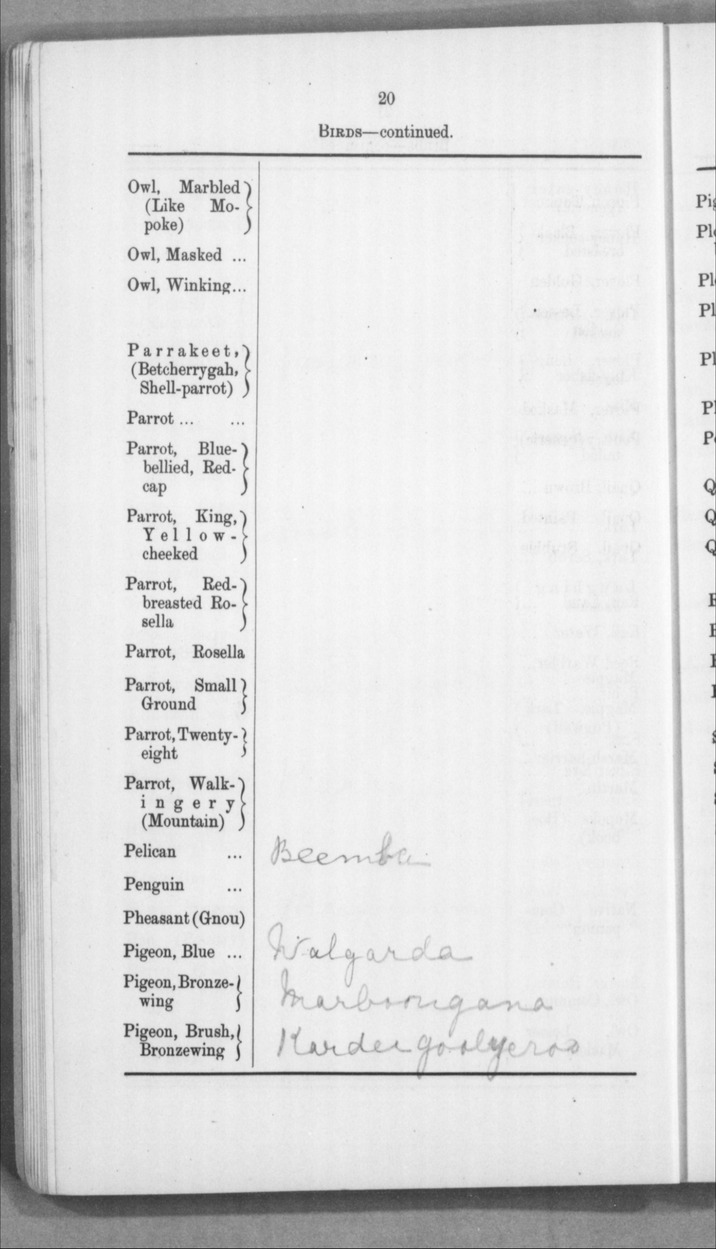 20
BIRDS—continued.
Owl, Marbled
(Like Mo-
poke)
Owl, Masked ...
Owl, Winking...
Parrakeet,
(Betcherrygah,
Shell-parrot)
Parrot ... ...
Parrot, Blue-
bellied, Red-
cap
Parrot, King,
Yellow-
cheeked
Parrot, Red-
breasted Ro-
sella
Parrot, Rosella
Parrot, Small
Ground
Parrot, Twenty-
eight
Parrot, Walk-
ingery
(Mountain)
Pelican ... Beemba
Penguin ...
Pheasant (Gnou)
Pigeon, Blue ... Walgarda
Pigeon, Bronze-
wing Marboongana
Pigeon, Brush,
Bronzewing